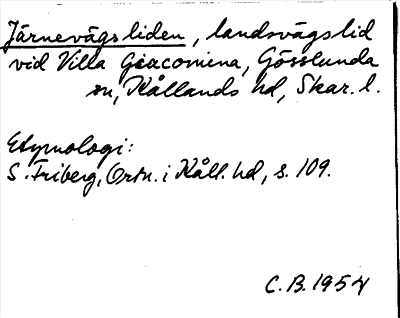 Järnevägsliden, landsvägslid
vid Villa Giacomina, Gösslunda
sn, Kållands hd, Skar. l.
Etymologi:
S. Friberg, Ortn. i Kåll. hd, s. 109.
C.B. 1954